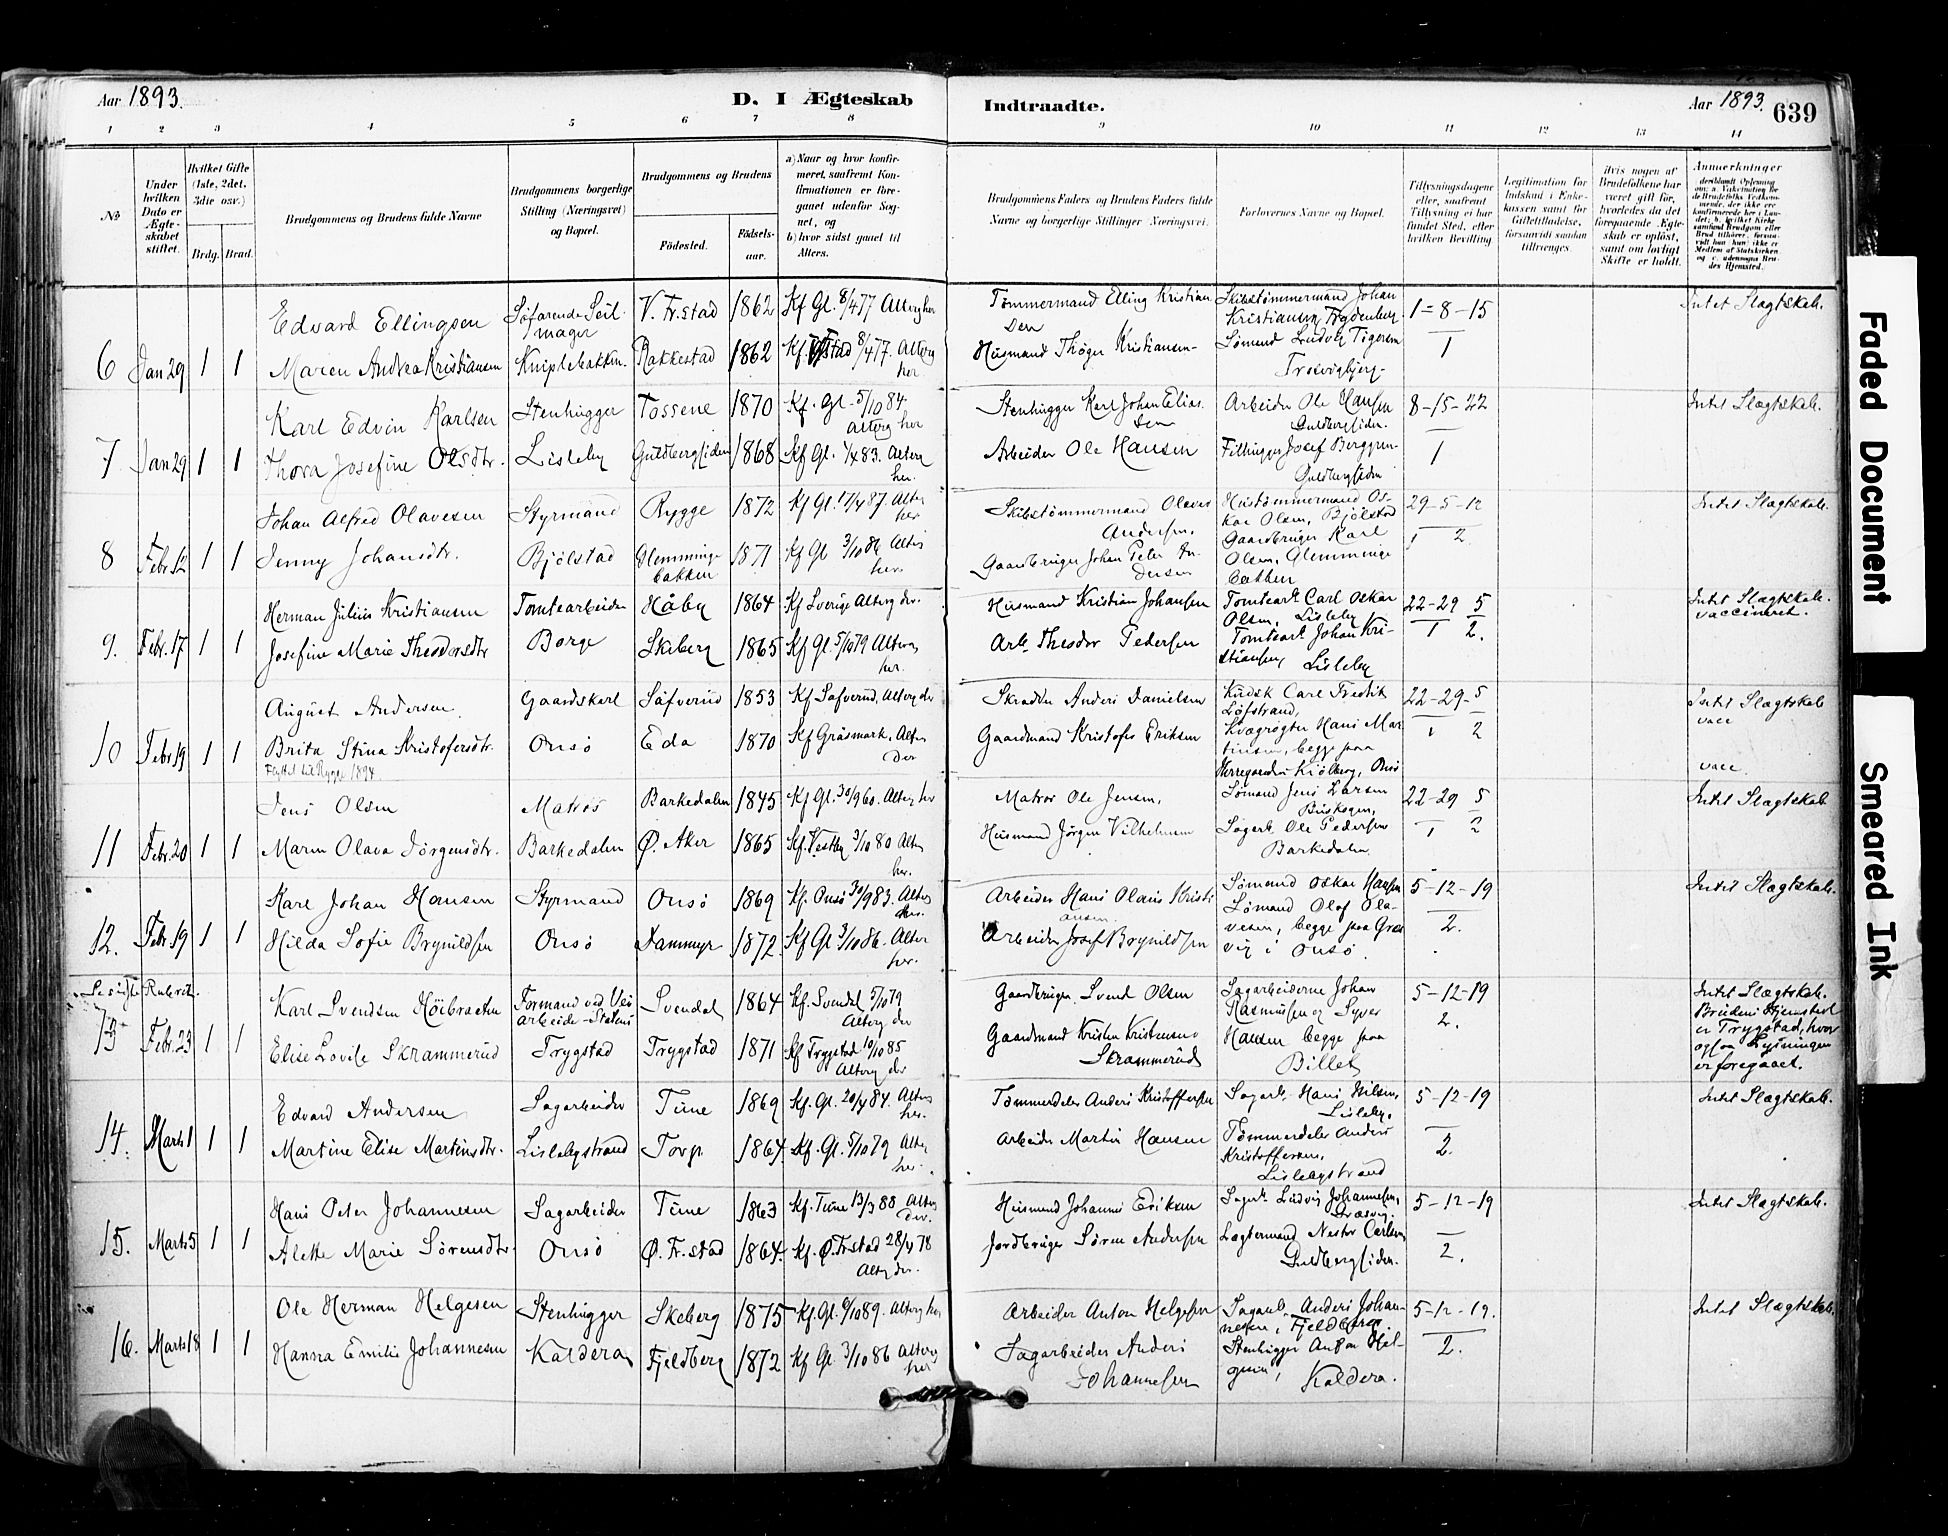 Aar 1893.
D. I Ægteskab Indtraadte.
Aar 1893. 639
1 2 3 4 5 6 7 8 9 10 11 12 13 14
No
Under hvilken Dato er Ægteskabet stiftet.
Hvilket Gifte (1ste, 2det, 3die osv.)
Brdg. Brud.
Brudgommens og Brudens fulde Navne
Brudgommens borgerlige Stilling (Næringsvei) og Bopæl.
Brudgommens og Brudens
Fødested.
Fødselsaar.
a) Naar og hvor konfirmeret, saafremt Konfirmationen er foregaaet udenfor Sognet, og
b) hvor sidst gaaet til Alters.
Brudgommens Faders og Brudens Faders fulde Navne og borgerlige Stillinger Næringsvei.
Forlovernes Navne og Bopæl.
Tillysningsdagene eller, saafremt Tillysning ei har fundet Sted, efter hvilken Bevilling
Legitimation for Indskud i Enkekassen samt for Giftetilladelse, forsaavidt saadan tiltrænges.
Hvis nogen af Brudefolkene har været gift før, hvorledes da det foregaaende Ægteskab er opløst, samt om lovligt Skifte er holdt.
Anmerkninger
Edvard Ellingsen Søfarende Seil- V. Fr.stad 1862 Kf Gl. 8/4 77 Alterg her Tømmermand Elling Kristian Skibstømmermand Johan 1-8-15 Intet Slægtskab.
mager sen Kristiansen,
6 Jan 29 1 1 Maren Andrea Kristiansen Kniplebakken. Rakkestad 1862 8/4 77. Alterg her Husmand Thøger Kristiansen Sømand Ludvig 1
Karl Edvin Karlsen Stenhugger Tossene 1870 Kf. Gl. 5/10 84. Stenhugger Karl Johan Elias Arbeider Ole Hansen 8-15-22 Intet Slægtskab.
Alterg her sen Guldbergsiden.
7 Jan 29 1 1 Thora Josefine Olsdtr. Lisleby Guldbergsiden 1868 Kf Gl. 1/4 83. Alterg her. Arbeider Ole Hansen Josef Berggren 1
Guldbergsiden
Johan Alfred Olavesen Styrmand Rygge 1872 Kf Gl. 17/4 87. Alter her Skibstømmermand Olaves Hustømmermand Os- 29-5-12 Intet Slægtskab.
Andersen. kar Olsen, Bjølstad
8 Febr. 12 1 1 Jenny Johansdtr. Bjølstad Glemminge 1871 Kf Gl 3/10 86 Alter Gaardbruger Johan Peter An- Gaardbruger Karl 1 2
bakken her. dersen Olsen, Glemminge
bakken
Herman Julius Kristiansen Tomtearbeider Håby 1864 Kf Sverige Alterg der. Husmand Kristian Johansen Tomtearb. Carl Oskar 22-29 5 Intet Slægtskab.
Olsen, Lisleby 1 2. vaccineret.
9. Febr. 17 1 1 Josefine Marie Theodorsdtr Borge Skeberg 1865 Kf Gl 5/10 79 Alterg her. Arb. Theodor Pedersen Tomtearb Johan Kri-
stiansen, Lisleby
August Andersen. Gaardskarl Säfverud 1853 Kf Säfverud, Alterg der Skrædder Anders Danielsen Kudsk Carl Fredrik 22-29- 5 Intet Slægtskab
Løfstrand, vacc
10 Febr. 19 1 1 Brita Stina Kristofersdtr. Onsö Eda 1870 Kf Gräsmark, Alter der Gaardmand Kristofer Eriksen Kvægrøgter Hans Mar 1 2
tinsen, begge paa
Flyttet til Rygge 1894. Herregaarden Kjølberg, Onsö vacc.
Jens Olsen Matros Barkedalen 1845 Kf Gl. 30/9 60. Alterg her Matros Ole Jensen, Sømand Jens Larsen 22-29 5 Intet Slægtskab
Buskogen,
11 Febr. 20 1 1 Maren Olava Jörgensdtr. Barkedalen Ø. Aker 1865 Kf. Vestby 3/10 80 Alter her. Husmand Jörgen Vilhelmsen Sagarb. Ole Pedersen 1 2
Barkedalen.
Karl Johan Hansen Styrmand Onsö 1869 Kf. Onsö 30/9 83. Alter her. Arbeider Hans Olaus Kristi Sømand Oskar Hansen 5-12-19 Intet Slægtskab.
ansen. Sømand Olof Ola-
12. Febr. 19 1 1 Hilda Sofie Brynildsen Onsö Dammyr 1872 Kf Gl 3/10 86. Alter her. Arbeider Josef Brynildsen vesen, begge paa Græs 2.
vig i Onsö.
Se sidste Rubrik.
Karl Svendsen Höibraaten Formand ved Vei Svendal 1864 Kf. Svendal 5/10 79 Gaardbruger. Svend Olsen Sagarbeiderne Johan 5-12-19 Intet Slægtskab.
arbeide - Statens Alterg der Rasmussen og Syver 2. Brudens Hjemsted
13 Febr. 23 1 1 Elise Lovise Skrammerud Trygstad Trygstad 1871 Kf Trygstad 10/10 85 Gaardmand Kristen Kristensen Hansen begge paa er Trygstad, hvor
Alterg der Skrammerud Billet ogsaa Lysningen
er foregaaet.
Edvard Andersen Sagarbeider Tune 1869 Kf. Gl. 20/4 84. Alter her. Tømmerdeler Anders Kristoffersen Sagarb. Hans Nilsen, 5-12-19 Intet Slægtskab.
Lisleby.
14. Marts 1 1 1 Martine Elise Martinsdtr. Lislebystrand Torp 1864 Kf. Gl. 5/10 79 Alter her. Arbeider Martin Hansen Tømmerdeler Anders 2.
Kristoffersen,
Lislebystrand
Hans Peter Johannesen Sagarbeider Tune 1863 Kf. Tune 13/3 88 Alter der. Husmand Johannes Eriksen Sagarb. Ludvig Johannesen, 5-12-19 Intet Slægtskab.
Græsvig.
15. Marts 5 1 1 Alette Marie Sörensdtr. Onsö Ø. Fr.stad 1864. Kf. Ø. Fr.stad 28/4 78 Jordbruger Sören Andersen Lagtermand Nestor Carlsen 2.
Alterg der. Guldbergsiden.
Ole Herman Helgesen Stenhugger Skeberg 1875 Kf. Gl. 6/10 89. Alterg her Arbeider Anton Helgesen Sagarb. Anders Johan- 5-12-19. Intet Slægtskab.
nesen, Fjeldberg
16. Marts 18 1 1 Hanna Emilie Johannesen Kaldera Fjeldberg 1872 Kf Gl. 3/10 86 Alterg her Sagarbeider Anders Stenhugger Anton Hel- 2.
Johannesen gesen, Kaldera.
Faded Document
Smeared Ink